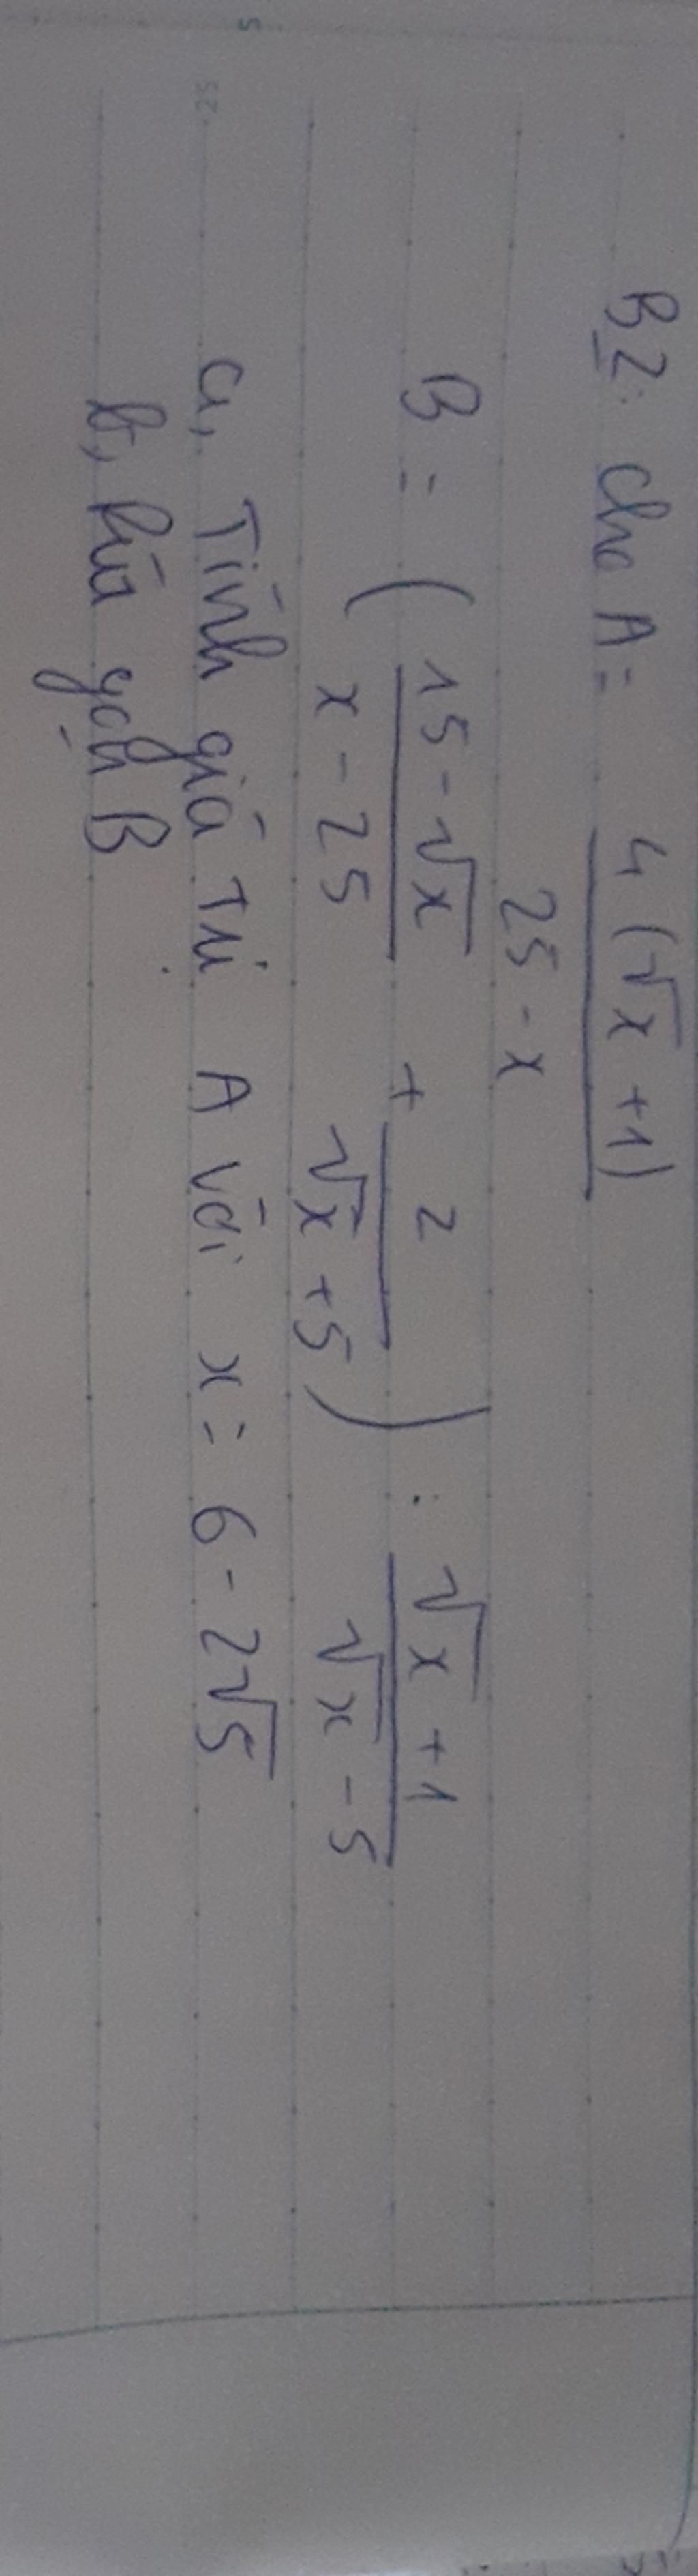 B2: Cho A = 4(√x + 1) / 25 - x
B = ( 15 - √x / x - 25 + 2 / √x + 5 ) : √x + 1 / √x - 5
a, Tính giá trị A với x = 6 - 2√5
b, Rút gọn B